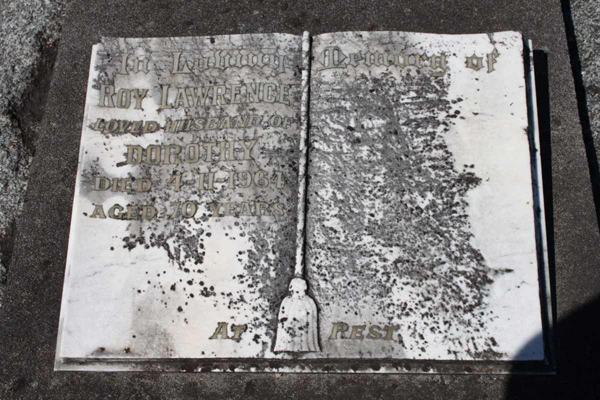 In Loving Memory of
ROY LAWRENCE
LOVED HUSBAND OF
DOROTHY
DIED 4-11-1964
AGED 70 YEARS
AT REST